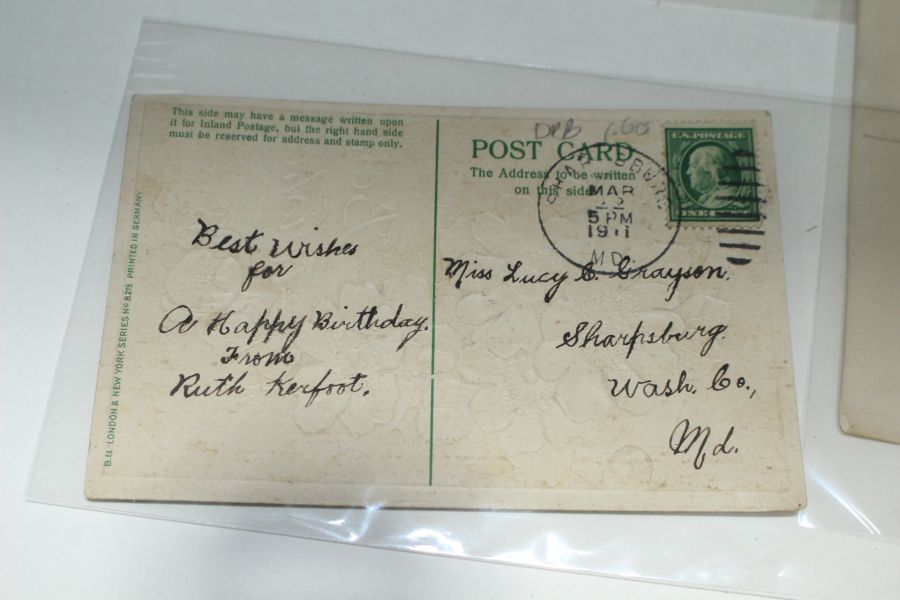 This side may have a message written upon
it for Inland Postage, but the right hand side
must be reserved for address and stamp only.
B.B. LONDON & NEW YORK SERIES No B273 PRINTED IN GERMANY
Best Wishes
for
A Happy Birthday.
From
Ruth Kerfoot.
POST CARD
The Address to be written
on this side
MAR
22
5 PM
1911
MD.
U.S. POSTAGE
ONE
Miss Lucy C. Grayson.
Sharpsburg.
Wash. Co.,
Md.